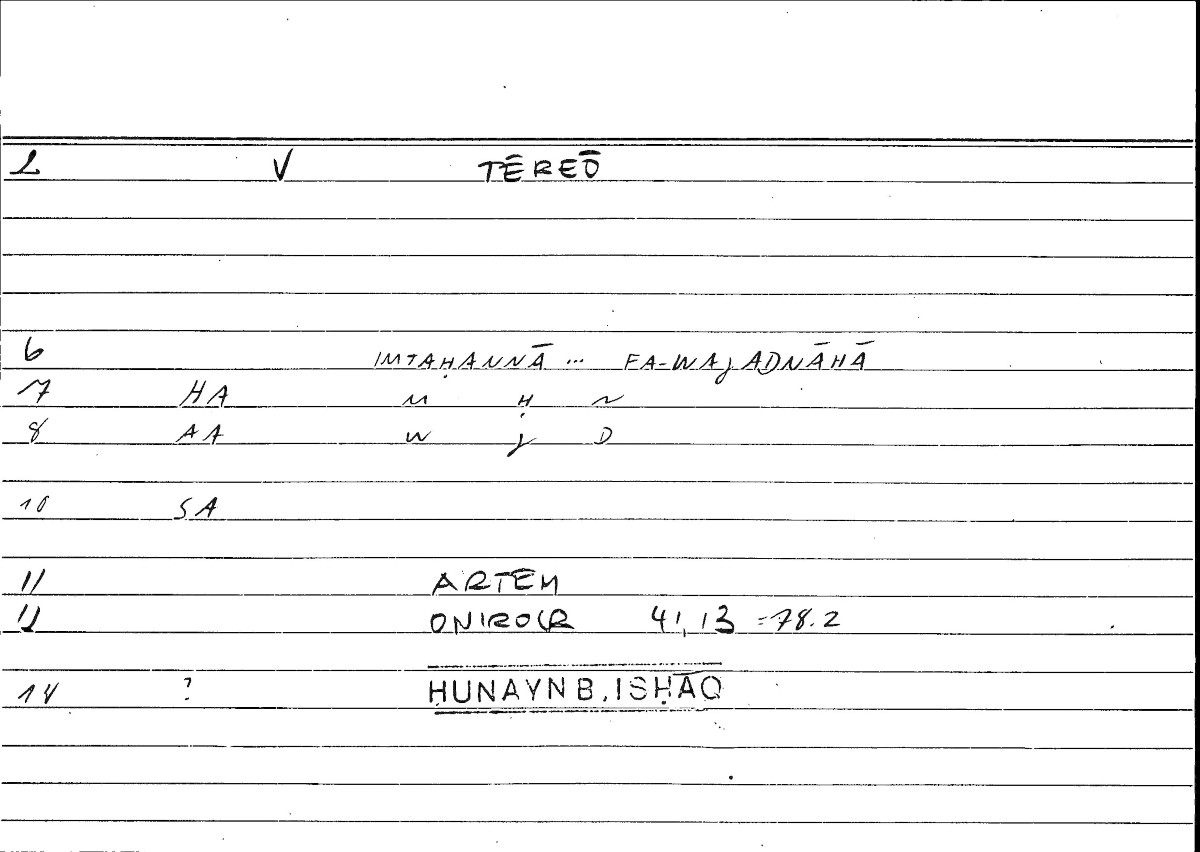 2 V TĒREŌ
6 IMTAḤANNĀ ... FA-WAJADNĀHĀ
7 HA M Ḥ N
8 AA W J D
10 SA
11 ARTEM
12 ONIROCR 41,13 =78.2
14 ? ḤUNAYN B. ISḤĀQ